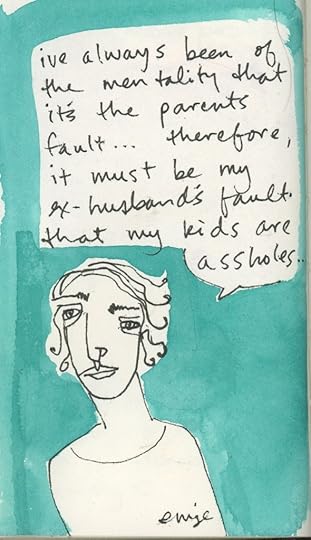 ive always been of
the mentality that
it's the parents
fault... therefore,
it must be my
ex-husband's fault.
that my kids are
assholes..